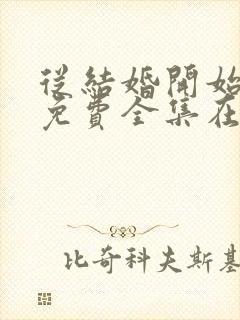 從結婚開始
免費全集在
比奇科夫斯基